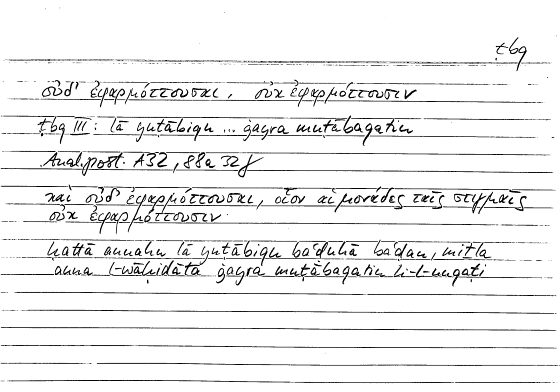 ṭbq
οὐδ' ἐφαρμόττουσαι, οὐκ ἐφαρμόττουσιν
ṭbq III: lā yuṭābiqu ... ġayra muṭābaqatin
Anal. post. A32, 88a 32f
καὶ οὐδ' ἐφαρμόττουσαι, οἷον αἱ μονάδες ταῖς στιγμαῖς
οὐκ ἐφαρμόττουσιν.
ḥattā annahu lā yuṭābiqu ba‛ḍuhā ba‛ḍan, miṯla
anna l-wāḥidāta ġayra muṭābaqatin li-l-nuqaṭi